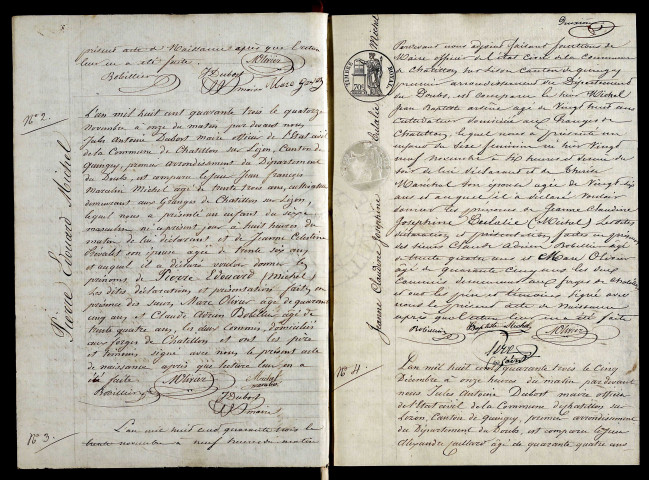 présent acte de Naissance après que lecture
leur en a été faite.
Bobillier
JDubort
maire
MOlivier
Marc
N° 2.
Pierre Edouard Michel
L'an mil huit cent quarante trois le quatorze
Novembre à onze du matin par devant nous
Jules Antoine Dubort maire officier de l'Etat civil
de la Commune de Chatillon sur Lizon, Canton de
Quingey, premier arrondissement du Département
du Doubs, est comparu le sieur Jean François
Marcelin Michel âgé de trente trois ans, cultivateur
demeurant aux Granges de Chatillon sur Lizon,
lequel nous a présenté un enfant du sexe
masculin né aujourd'hui à huit heures du
matin de lui déclarant et de Jeanne Celestine
son épouse âgée de trente six ans,
et auquel il a déclaré vouloir donner les
prénoms de Pierre Edouard (Michel)
Les dites déclaration et présentation faites en
présence des sieurs Marc Olivier âgé de quarante
cinq ans et Claude Adrien Bobillier âgé de
trente quatre ans, les deux Commis, domiciliés
aux forges de Chatillon et ont les père
et témoins signé avec nous le présent acte
de naissance après que lecture leur en a
été faite.
MOlivier
Michel
Bobillier
JDubort
maire
N° 3.
L'an mil huit cent quarante trois le
trente novembre à neuf heures du matin
Jeanne Claudine Josephine Eulalie Michel
TIMBRE ROYAL
Pardevant nous adjoint faisant fonctions de
Maire officier de l'état Civil de la Commune
de Chatillon sur Lison Canton de Quingey
premier arrondissement du Département
du Doubs, est comparu le sieur Michel
Jean Baptiste arsène agé de Vingt huit ans
cultivateur domicilié aux Granges de
Chatillon, lequel nous a présenté un
enfant du sexe féminin né hier Vingt
neuf Novembre à heures et demie du
soir de lui déclarant et de Thérèse
Maréchal son épouse agée de Vingt six
ans et auquel il a déclaré vouloir
donner les prénoms de Jeanne Claudine
Josephine Eulalie (Michel) Lesdites
déclaration et présentation faites en présence
des sieurs Claude Adrien Bobillier agé
de trente quatre ans et Marc Olivier
agé de quarante cinq ans les deux
Commis demeurant aux forges de Chatillon
et ont les père et témoins signé avec
nous le présent acte de Naissance
après que lecture leur en a été faite
Bobillier
Baptiste Michel
MOlivier
N° 4.
L'an mil huit cent quarante trois le Cinq
Décembre à onze heures du matin par devant
nous Jules Antoine Dubort maire officier
de l'Etat civil de la Commune de Chatillon sur
Lizon, Canton de Quingey, premier arrondissement
du Département du Doubs, est comparu le sieur
Alexandre agé de quarante quatre ans